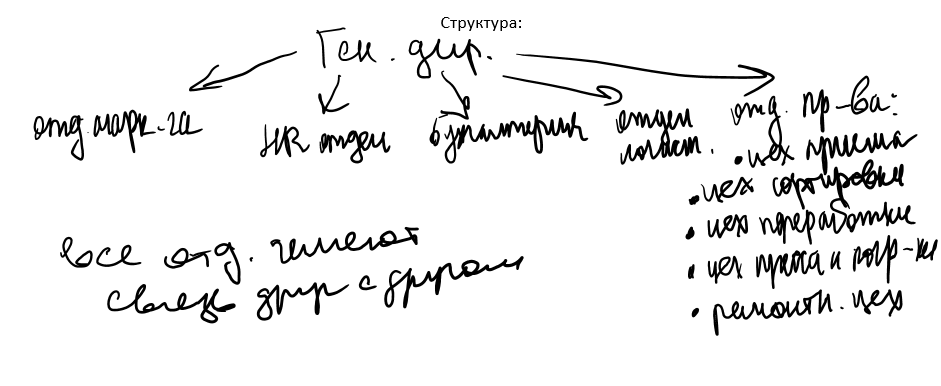 Структура:
Ген. дир.
отд. марк-га
HR отдел
бухгалтерия
отдел
логист.
отд. пр-ва:
• цех приема
• цех сортировки
• цех переработки
• цех и погр-ки
• ремонтн. цех
все отд. имеют
связь друг с другом